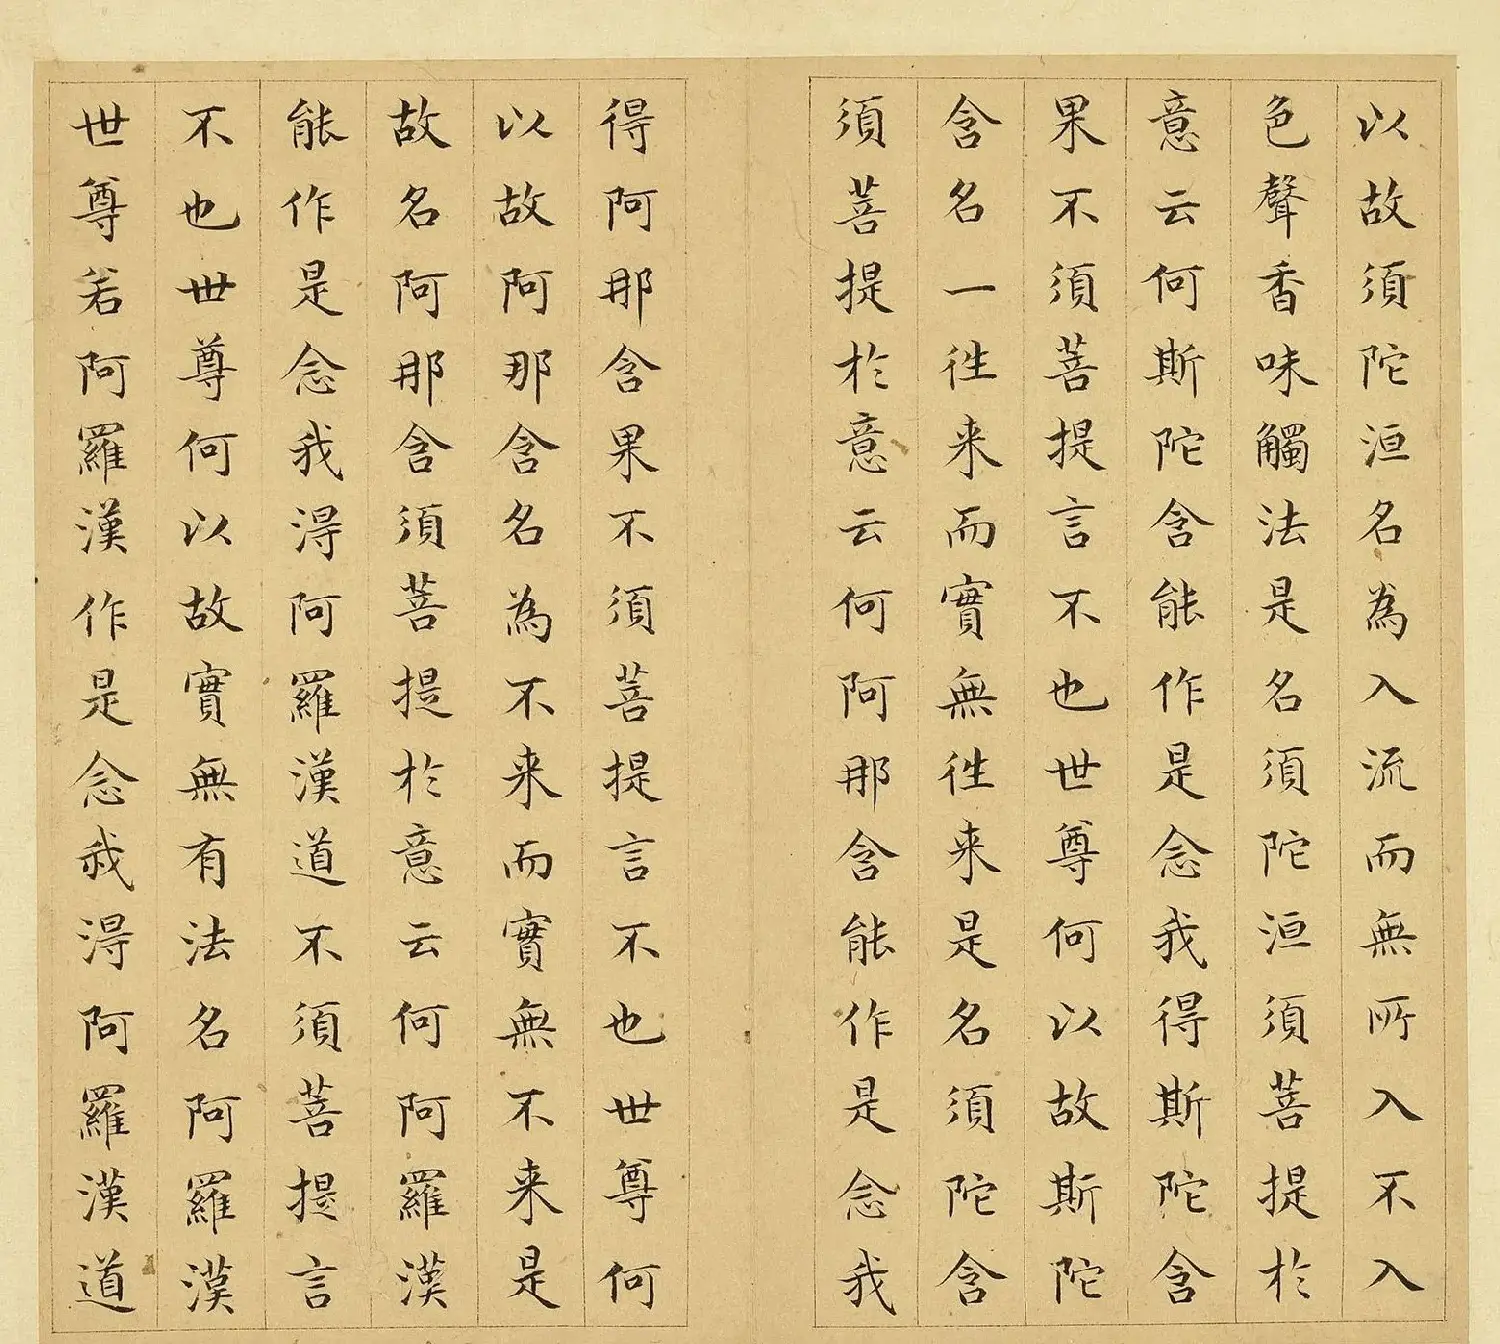 以故須陀洹名為入流而無所入不入
色聲香味觸法是名須陀洹須菩提於
意云何斯陀含能作是念我得斯陀含
果不須菩提言不也世尊何以故斯陀
含名一徃来而實無徃来是名須陀含
須菩提於意云何阿那含能作是念我
得阿那含果不須菩提言不也世尊何
以故阿那含名為不来而實無不来是
故名阿那含須菩提於意云何阿羅漢
能作是念我淂阿羅漢道不須菩提言
不也世尊何以故實無有法名阿羅漢
世尊若阿羅漢作是念我淂阿羅漢道